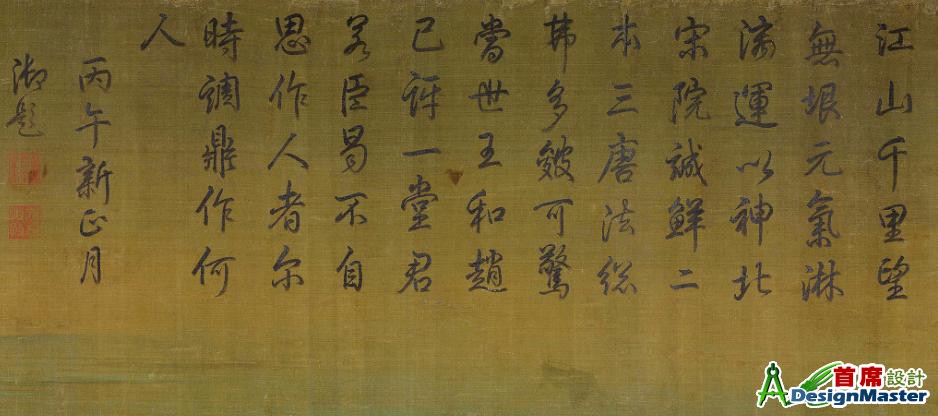 江山千里望
無垠元氣淋
漓運以神北
宋院誠鮮二
本三唐法總
弗多皴可驚
當世王和趙
已訝一堂君
若臣曷不自
思作人者尔
時調鼎作何
人
丙午新正月
御題
首席設計
DesignMaster